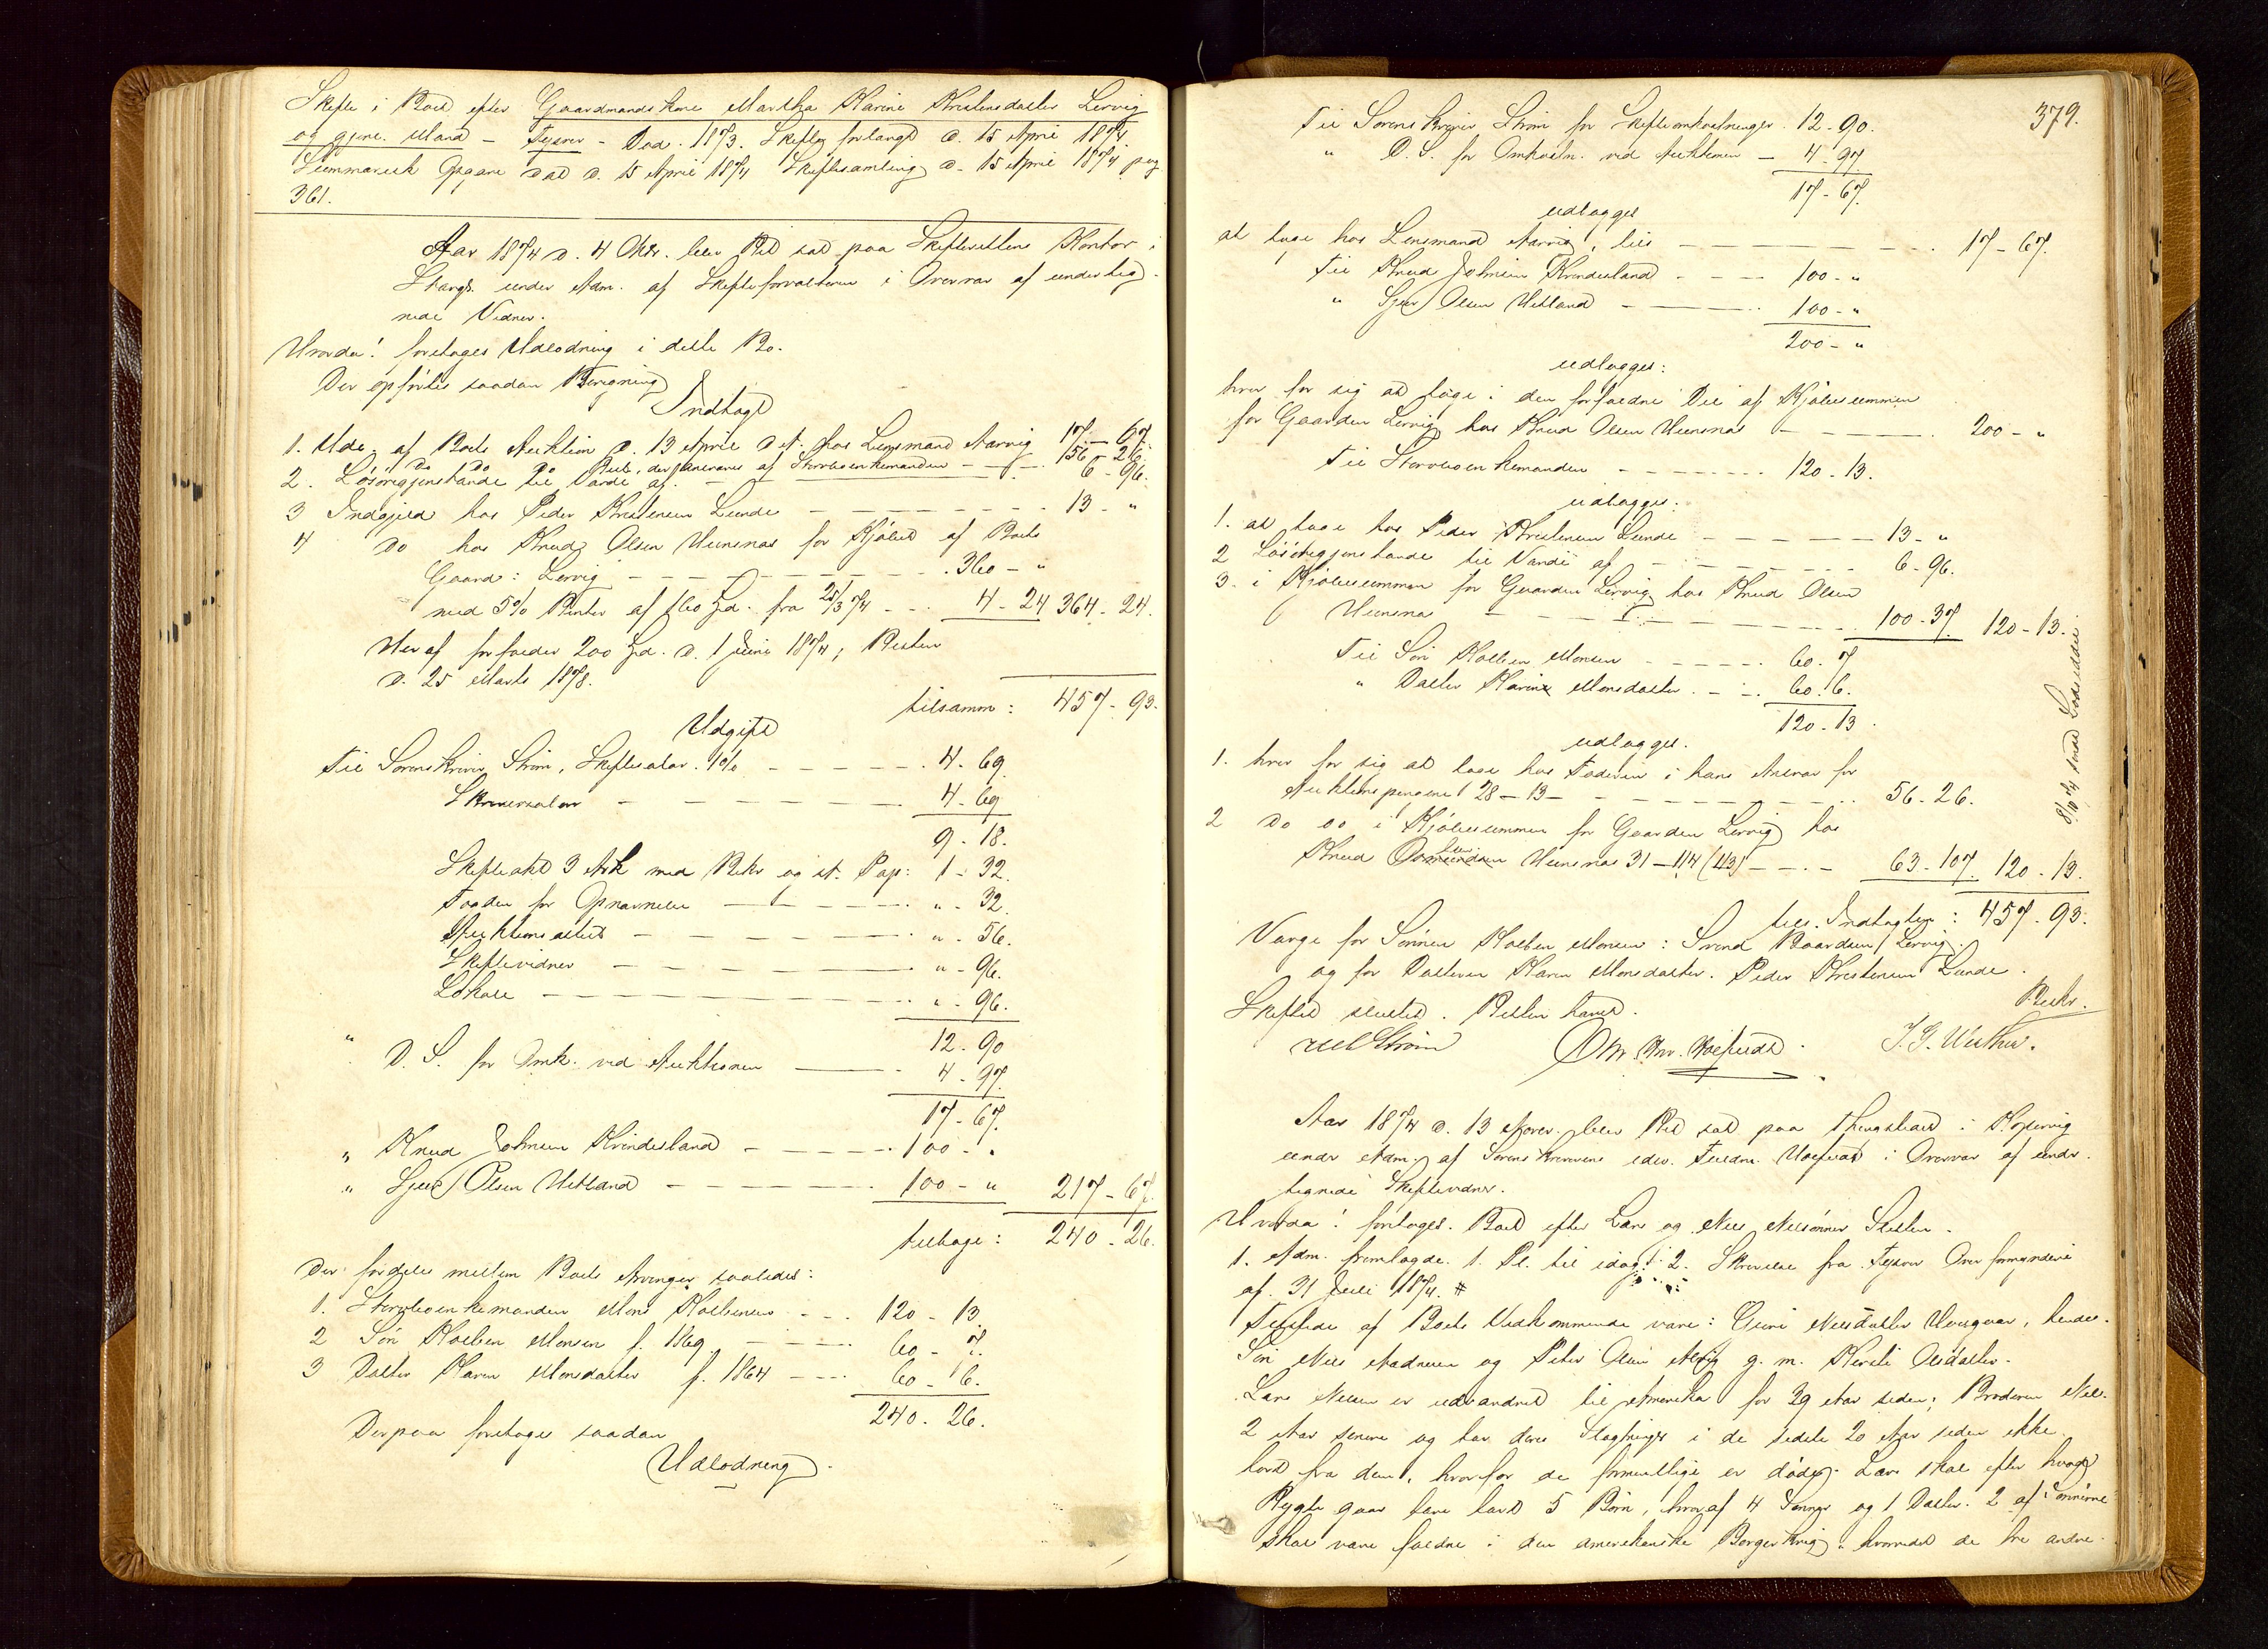 Skifte i Boet efter Gaardmandskone Martha Karine Kristensdatter Lervig
og gjenl. Mand - Tysvær - Død. 1873. Skifte forlangt d. 15 April 1874.
Summarisk Opgave dat d. 15 April 1874 Skiftesamling d. 15 April 1874 pag
361.
Aar 1874 d. 4 Oktr. blev Ret sat paa Skifterettens Kontor i
Stavgr. under Adm. af Skifteforvalteren i Overvær af underteg-
nede Vidner.
Hvorda! foretoges Udlodning i dette Bo.
Der opførtes saadan Beregning
Indtægt
1. Udb. af Boets Auktion d. 13 April d. A. hos Lensmand Aarvig 17 - 67.
Do Do Do Do Reb., der ansvares af Sterboenkemanden - - - 156 - 26.
2. Løsøregjenstande til Værdi af - - - 6 - 96.
3 Indgjæld hos Peder Kristensen Lunde - - - 13 - "
4 Do hos Knud Olsen Hunsnæs for Kjøbet af Boets
Gaard: Lervig - - - 360 - "
med 5% Renter af 160 Spd. fra 25/3 74 - - - 4 - 24 364 - 24.
Heraf forfalder 200 Spd. d. 1 Juni 1874, Resten
d. 25 Marts 1878.
tilsamm: 457 - 93.
Udgift
Til Sorenskriver Strøm, Skiftesalær. 1% - - - 4 - 69
Skriversalær - - - 4 - 69
9 - 18.
Skifteakt 3 Ark med Bekr og st. Pap: 1 - 32.
Fogden for Opnævnelse - - - " - 32.
Auktions attest - - - " - 56.
Skiftevidner - - - " - 96.
Lokale - - - " - 96.
12 - 90
" D. S. for Omk. ved Auktionen - - - 4 - 97.
17 - 67.
" Knud Johnsen Kvindesland - - - 100 - "
" Sjur Olsen Hetland - - - 100 - " 217 - 67.
tilbage: 240 - 26.
Der fordeles mellem Boets Arvinger saaledes:
1. Sterboenkemanden Mons Kolbensen - - - 120 - 13
2 Søn Kolben Monsen f. 1869 - - - 60 - 7.
3 Datter Karen Monsdatter f. 1864 - - - 60 - 6.
240 - 26.
Derpaa foretoges saadan
Udlodning.
379.
Til Sorenskriver Strøm for Skifteomkostninger. 12 - 90.
" D. S. for Omkostn. ved Auktionen - 4 - 97.
17 - 67.
udlægges
at tage hos Lensmand Aarvig, til - - - 17 - 67.
Til Knud Johnsen Kvindesland - - - 100 - "
" Sjur Olsen Hetland - - - 100 - "
200 - "
udlægges:
hver for sig at tage i den forfaldne Del af Kjøbesummen
for Gaarden Lervig hos Knud Olsen Hunsnæs - - - 200 - "
Til Sterboenkemanden - - - 120 - 13.
udlægges:
1. at tage hos Peder Kristensen Lunde - - - 13 - "
2 Løsøregjenstande til Værdi af - - - 6 - 96.
3. i Kjøbesummen for Gaarden Lervig hos Knud Olsen
Hunsnæs - - - 100 - 37 120 - 13.
Til Søn Kolben Monsen - - - 60 - 7
" Datter Karine Monsdatter - - - 60 - 6.
120 - 13.
udlægges.
1. hver for sig at tage hos Faderen i hans Ansvar for
Auktionspengene 28 - 13 - - - 56 - 26.
2 Do Do i Kjøbesummen for Gaarden Lervig hos
Knud Olsen Hunsnæs 31 - 114 (113) - - - 63 - 107. 120 - 13.
tils. Indtægten: 457 - 93.
Værge for Sønnen Kolben Monsen: Svend Baardsen Lervig.
og for Datteren Karen Monsdatter. Peder Kristensen Lunde.
Skiftet sluttet. Retten hævet.
Bekr.
Strøm J. G. Werther.
Aar 1874 d. 13 Novbr. blev Ret sat paa Thingstedet i Kopervig
under Adm. af Sorenskriverens edsv. Fuldm. i Overvær af under-
tegnede Skiftevidner.
Hvorda! foretoges. Boet efter Lars og Nils Nilssønner
1. Adm. fremlagde. 1. Pl. til idag. 2. Skrivelse fra Tysvær Overformynderi
af. 31 Juli 1874. #
Tilstede af Boets Vedkommende vare: Guri Nilsdatter, hendes
Søn Nils Aadnesen og Peter Olsen g. m. Kirsti Olsdatter.
Lars Nilsen er udvandret til Amerika for 39 Aar siden; Broderen Nils
2 Aar senere og har deres Slægtninger i de sidste 20 Aar siden ikke
hørt fra dem, hvorfor de formentlige er døde. Lars skal efter hvad
Rygte gaar have havt 5 Børn, hvoraf 4 Sønner og 1 Datter. 2 af Sønnerne
skal være faldne i den amerikanske Borgerkrig, hvorved de tre andre